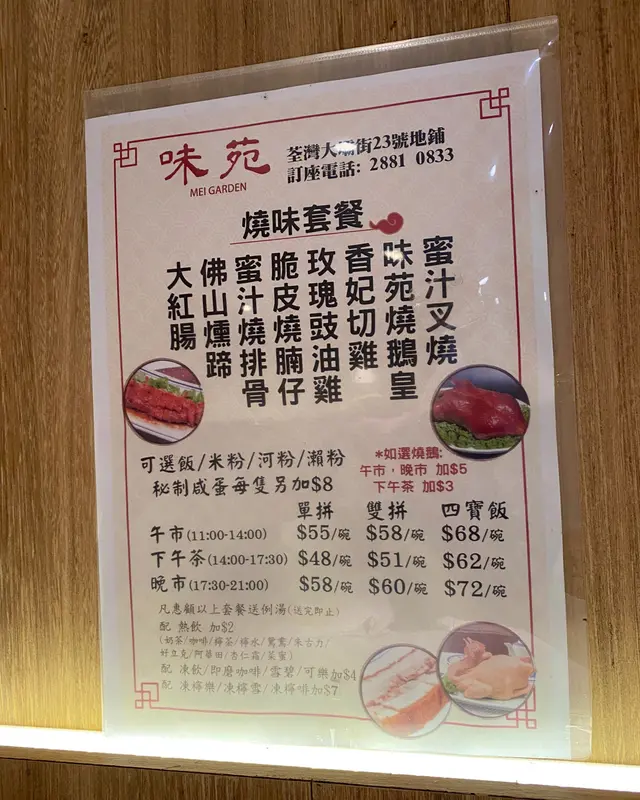 味苑
MEI GARDEN
荃灣大廟街23號地鋪
訂座電話: 2881 0833
燒味套餐
蜜汁叉燒
味苑燒鵝皇
香妃切雞
玫瑰豉油雞
脆皮燒腩仔
蜜汁燒排骨
佛山燻蹄
大紅腸
可選飯/米粉/河粉/瀨粉
秘制咸蛋每隻另加$8
*如選燒鵝:
午市，晚市 加$5
下午茶 加$3
單拼 雙拼 四寶飯
午市(11:00-14:00) $55/碗 $58/碗 $68/碗
下午茶(14:00-17:30) $48/碗 $51/碗 $62/碗
晚市(17:30-21:00) $58/碗 $60/碗 $72/碗
凡惠顧以上套餐送例湯(送完即止)
配 熱飲 加$2
(奶茶/咖啡/檸茶/檸水/鴛鴦/朱古力/
好立克/阿華田/杏仁霜/菜蜜)
配 凍飲/即磨咖啡/雪碧/可樂加$4
配 凍檸樂/凍檸雪/凍檸啡加$7